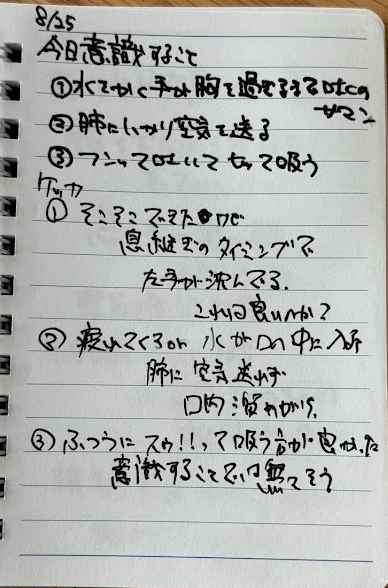 8/25
今日意識すること
①水でかく手が胸を過ぎる
②肺にしっかり空気を送る
③フンッて吐いて
って吸う
ケッカ
① そこそこできたけど
息継ぎのタイミングで
左手が沈んでる。
これは良いのか？
② 疲れてくる or 水が口の中に入る
肺に空気送れず
口内
③ ふつうにスゥ!!って吸う方が
意識することでは無さそう